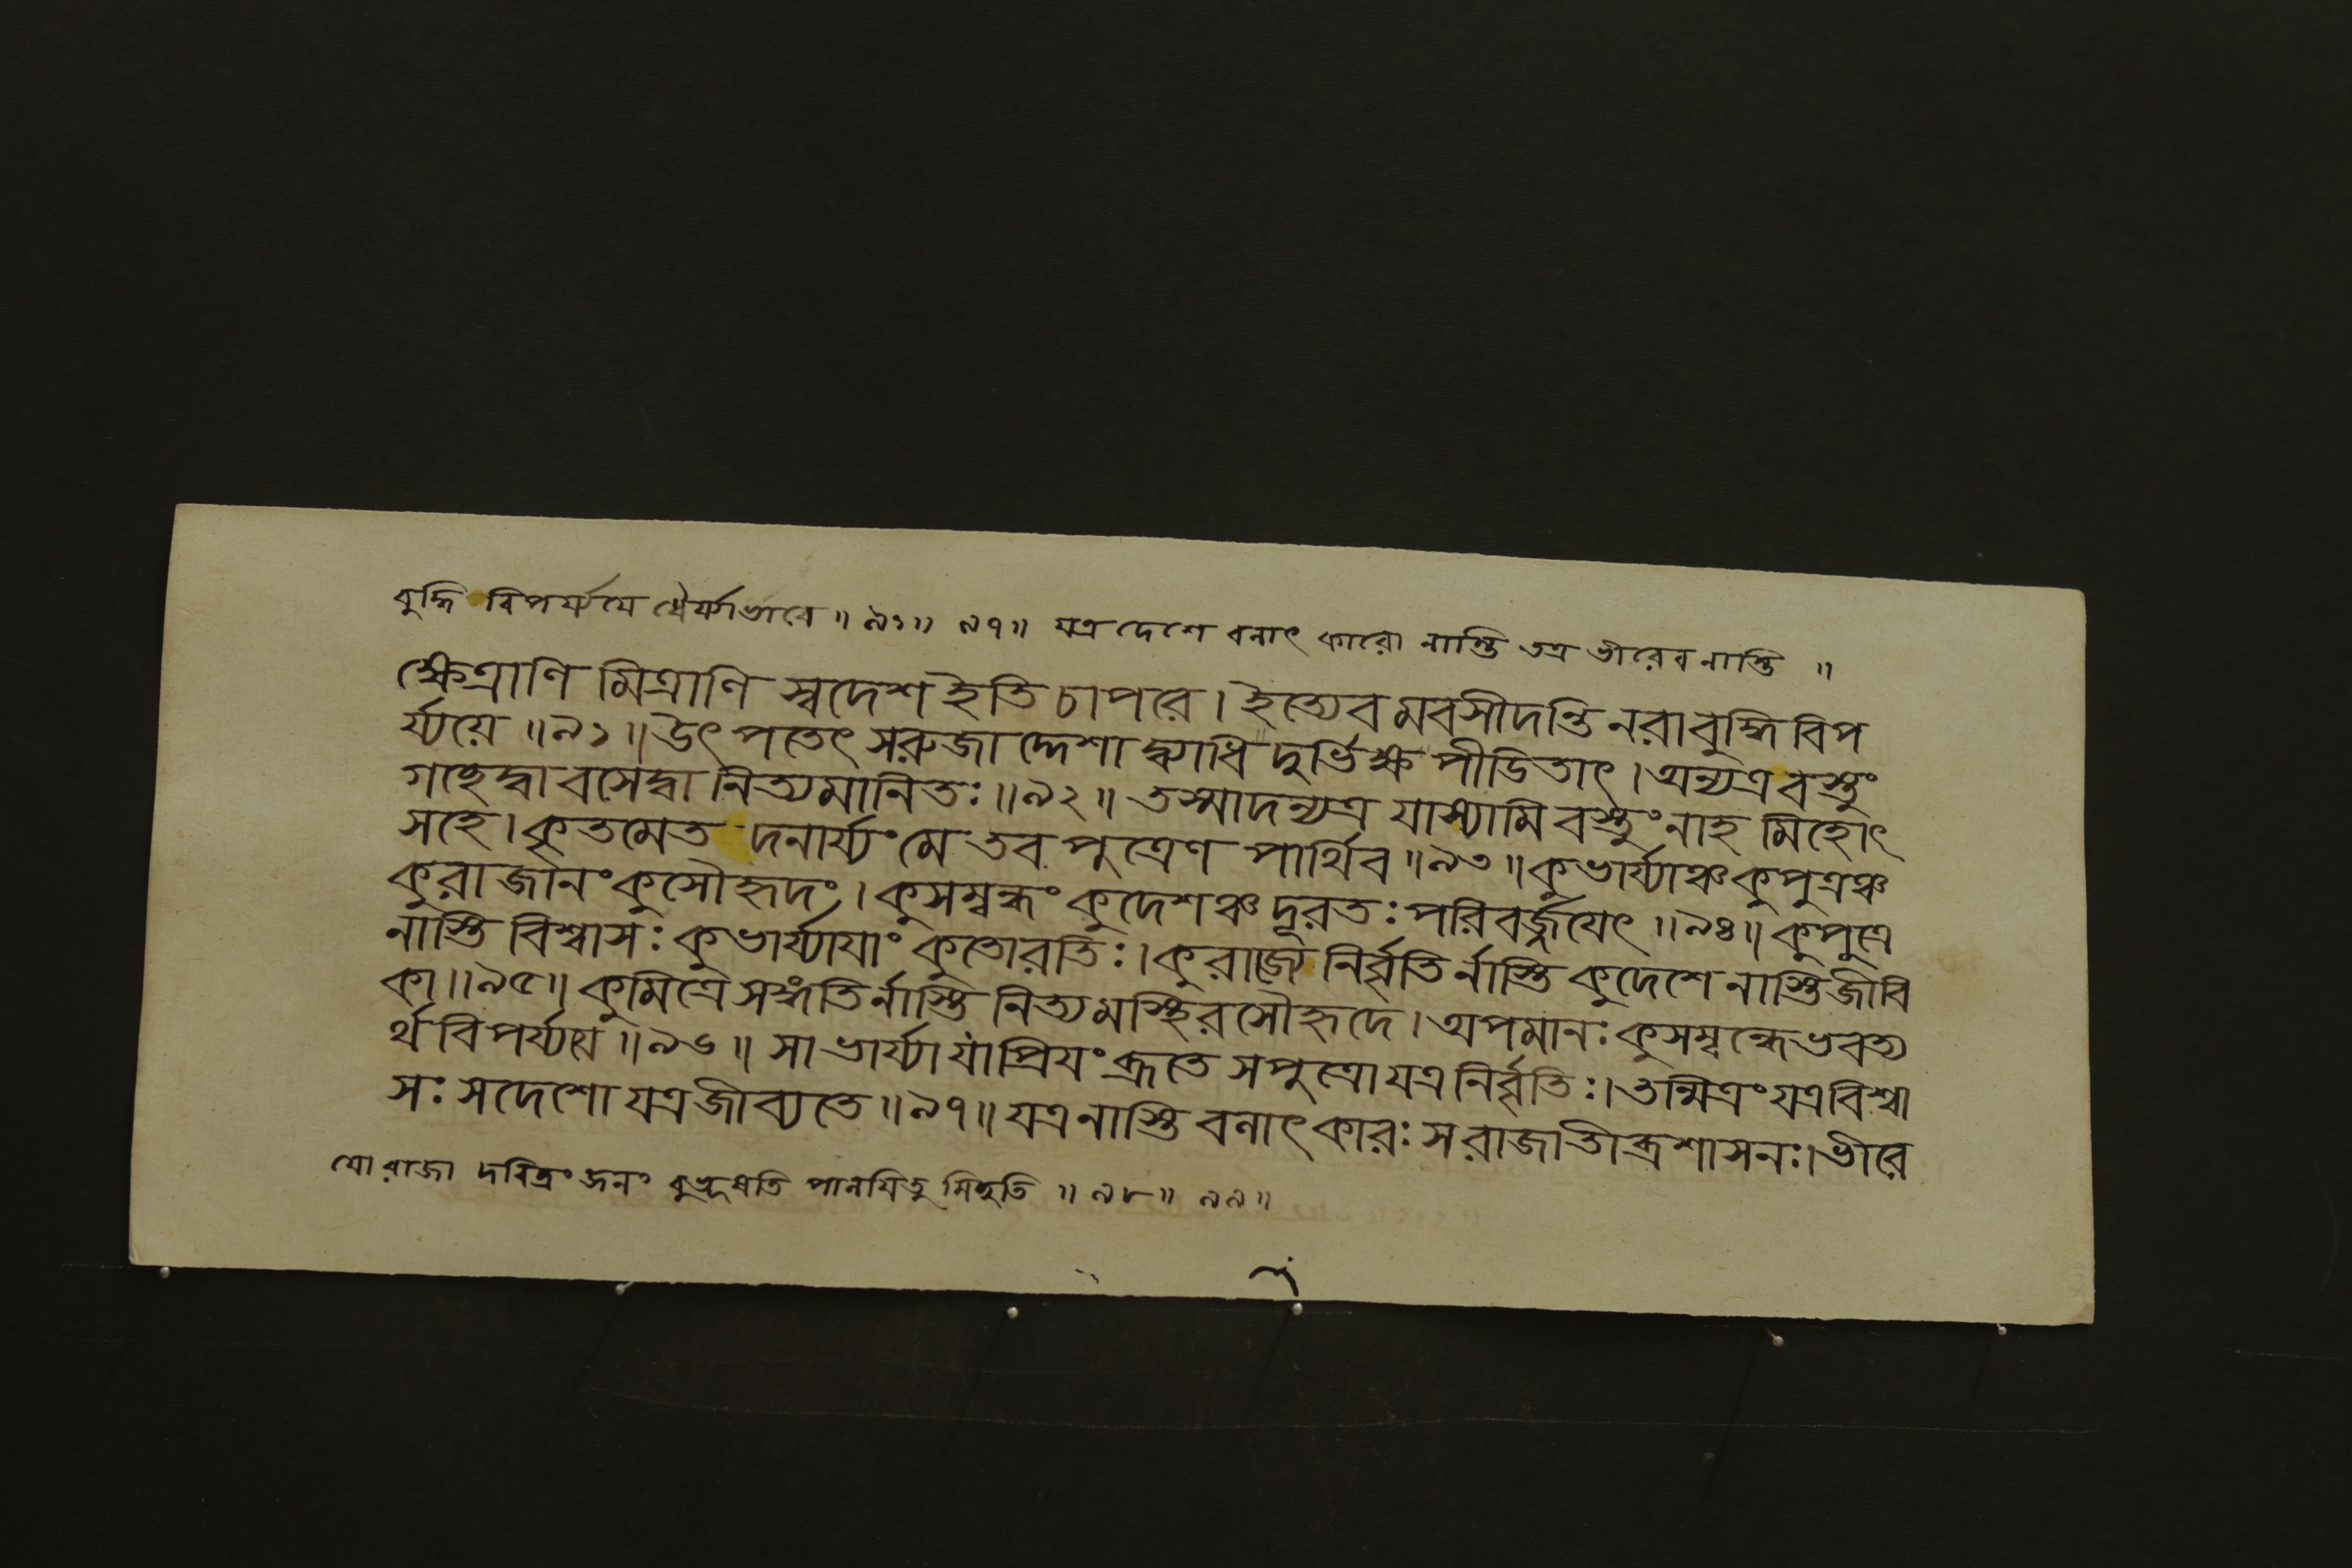 বুদ্ধি বিপর্য্যয়ে ধৈর্য্যাভাবে ॥ ৯১॥ ৯৭॥ যত্র দেশে বলাৎ কারো নাস্তি তত্র ভীরেব নাস্তি ॥
ক্ষেত্রাণি মিত্রাণি স্বদেশ ইতি চাপরে । ইত্যেব মবসীদন্তি নরা বুদ্ধি বিপ
র্য্যয়ে ॥৯১॥ উৎ পতেৎ সরুজা দ্দেশা দ্ব্যাধি দুর্ভিক্ষ পীডিতাৎ । অন্যত্র বস্তুং
গচ্ছেদ্বা বসেদ্বা নিত্যমানিতঃ ॥৯২॥ তস্মাদন্যত্র যাস্যামি বস্তুং নাহ মিহোৎ
সহে । কৃতমেত দনার্য্যং মে তব পুত্রেণ পার্থিব ॥৯৩॥ কুভার্য্যাঞ্চ কুপুত্রঞ্চ
কুরাজানং কুসৌহৃদং । কুসম্বন্ধং কুদেশঞ্চ দূরতঃ পরিবর্জ্জয়েৎ ॥৯৪॥ কুপুত্রে
নাস্তি বিশ্বাসঃ কুভার্য্যাযাং কুতোরতিঃ । কুরাজ্যে নির্বৃতি র্নাস্তি কুদেশে নাস্তি জীবি
কা ॥৯৫॥ কুমিত্রে সঙ্গতির্নাস্তি নিত্য মস্থির সৌহৃদে । অপমানঃ কুসম্বন্ধে ভবত্য
র্থ বিপর্য্যয়ে ॥৯৬॥ সা ভার্য্যা যা প্রিযং ব্রূতে স পুত্রো যত্র নির্বৃতিঃ । তন্মিত্রং যত্র বিশ্বা
সঃ স দেশো যত্র জীব্যতে ॥৯৭॥ যত্র নাস্তি বলাৎ কারঃ স রাজা তীব্র শাসনঃ । ভীরে
যো রাজা দরিদ্রং জনং পালযিতু মিচ্ছতি ॥ ৯৮॥ ৯৯॥